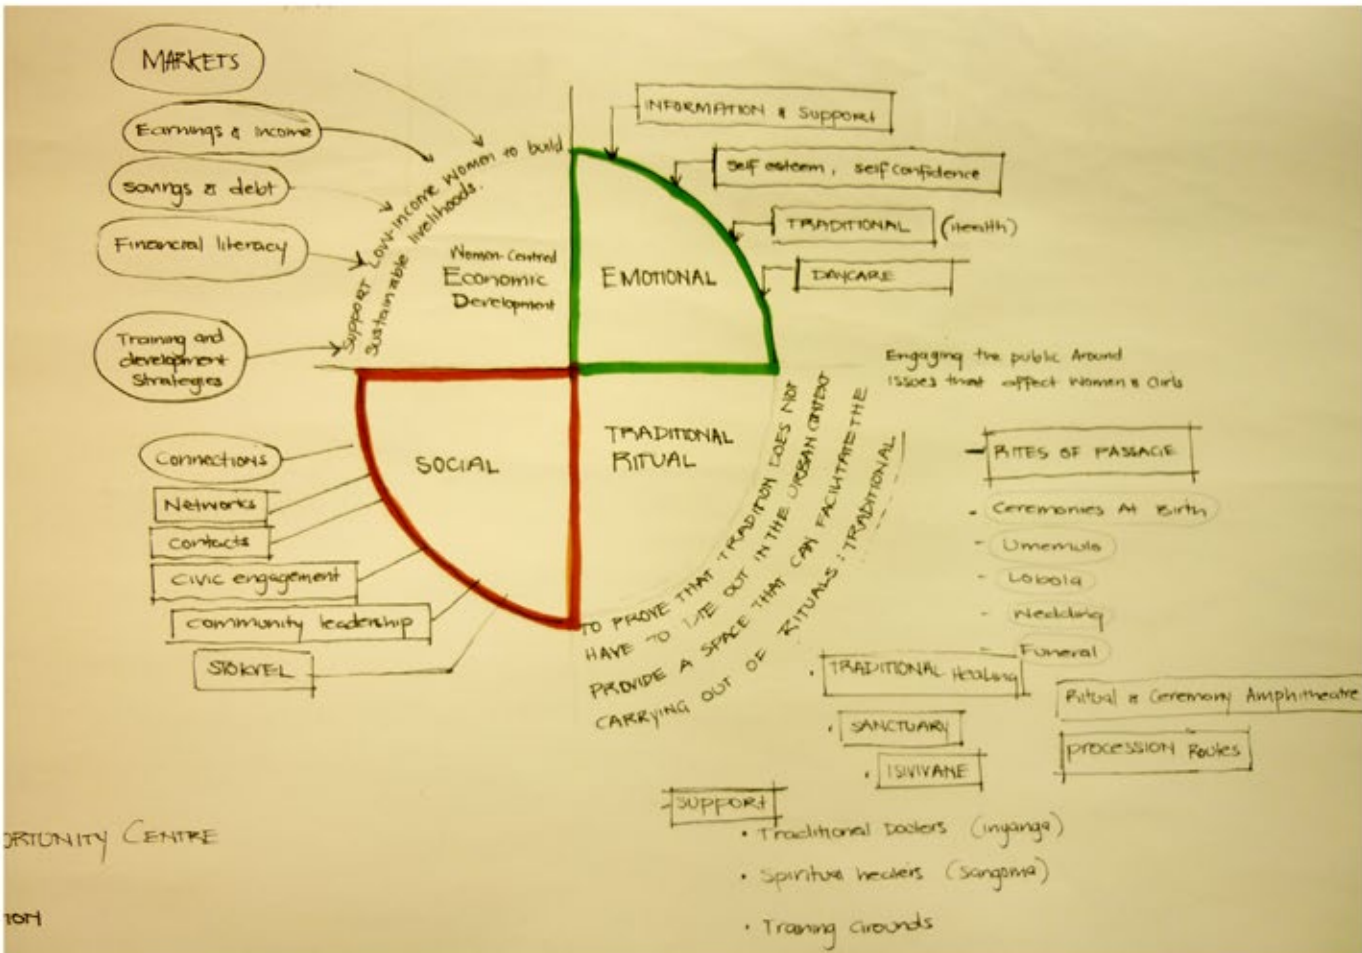 MARKETS
Earnings & Income
Savings & debt
Financial literacy
Training and
development
Strategies
Support Low-income Women to build
Sustainable livelihoods.
Women-Centred
Economic
Development
EMOTIONAL
INFORMATION & Support
self esteem, self confidence
TRADITIONAL (Health)
DAYCARE
SOCIAL
Connections
Networks
Contacts
Civic engagement
Community leadership
STOKVEL
TRADITIONAL
RITUAL
TO PROVE THAT TRADITION DOES NOT
HAVE TO DIE OUT IN THE URBAN CONTEXT
PROVIDE A SPACE THAT CAN FACILITATE THE
CARRYING OUT OF RITUALS: TRADITIONAL
Engaging the public Around
issues that affect Women & Girls
- RITES OF PASSAGE
• Ceremonies At Birth
- Umemulo
- Lobola
- Wedding
- Funeral
• TRADITIONAL Healing
• SANCTUARY
• ISIVIVANE
Ritual & Ceremony Amphitheatre
PROCESSION Routes
- SUPPORT
• Traditional Doctors (inyanga)
• Spiritual healers (Sangoma)
• Training Grounds
ORTUNITY CENTRE
ION